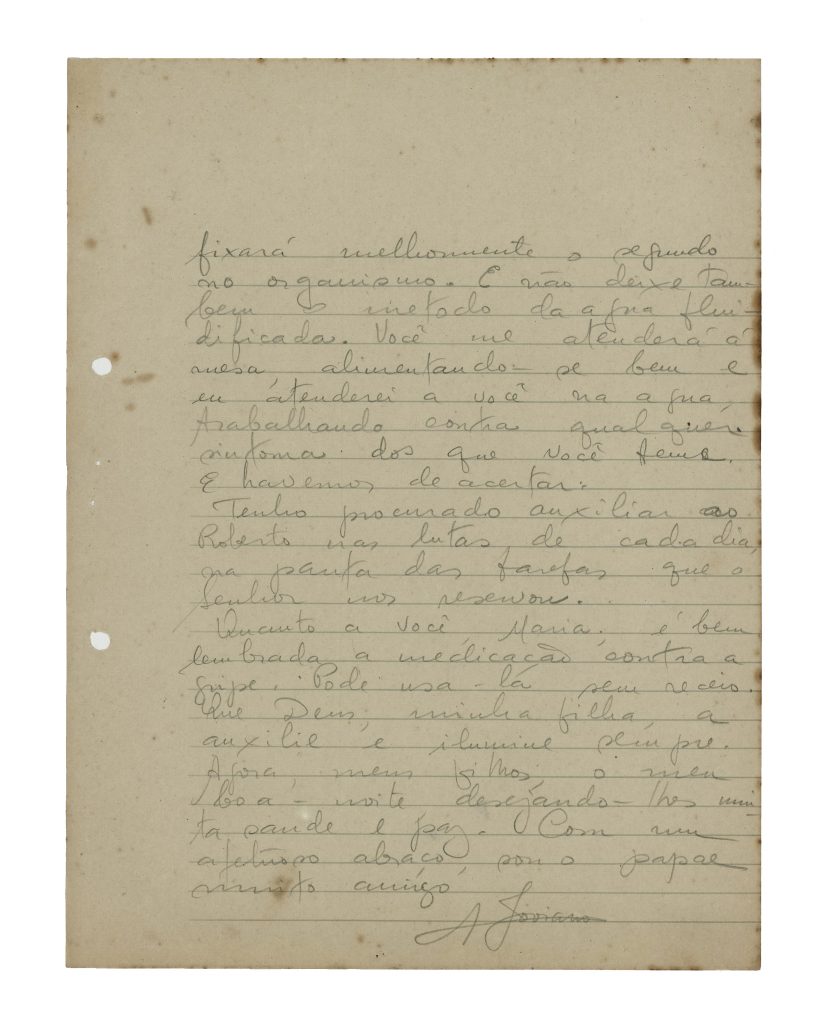 fixará melhormente o segundo
no organismo. E não deixe tam-
bem o metodo da agua flui-
dificada. Você me atenderá á
mesa, alimentando-se bem e
eu atenderei a você na agua,
trabalhando contra qualquer
sintoma dos que você teme.
E havemos de acertar.
Tenho procurado auxiliar ao
Roberto nas lutas de cada dia,
na pauta das tarefas que o
Senhor nos reservou.
Quanto a você, Maria, é bem
lembrada a medicação contra a
gripe. Pode usa-la sem receio.
Que Deus, minha filha, a
auxilie e ilumine sempre.
Agora, meus filhos, o meu
boa-noite desejando-lhes mui-
ta saude e paz. Com um
afetuoso abraço, sou o papae
muito amigo,
A Joviano